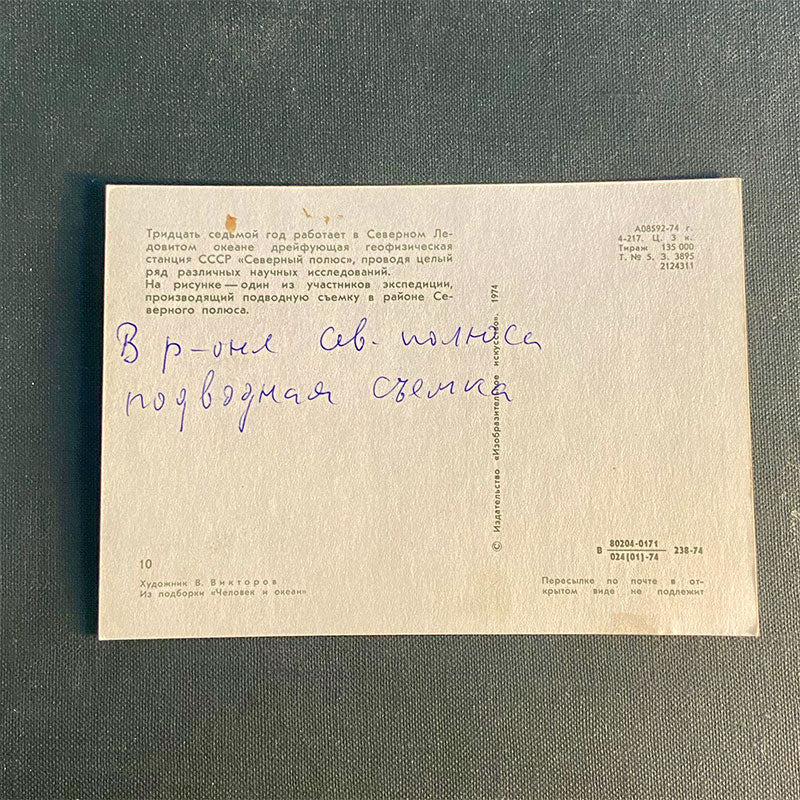 Тридцать седьмой год работает в Северном Ле-
довитом океане дрейфующая геофизическая
станция СССР «Северный полюс», проводя целый
ряд различных научных исследований.
На рисунке — один из участников экспедиции,
производящий подводную съемку в районе Се-
верного полюса.
В р-оне сев. полюса
подводная съемка
А08592-74 г.
4-217. Ц. 3 к.
Тираж 135 000
Т. № 5. З. 3895
2124311
© Издательство «Изобразительное искусство». 1974
10
Художник В. Викторов
Из подборки «Человек и океан»
В 80204-0171
024(01)-74 238-74
Пересылке по почте в от-
крытом виде не подлежит